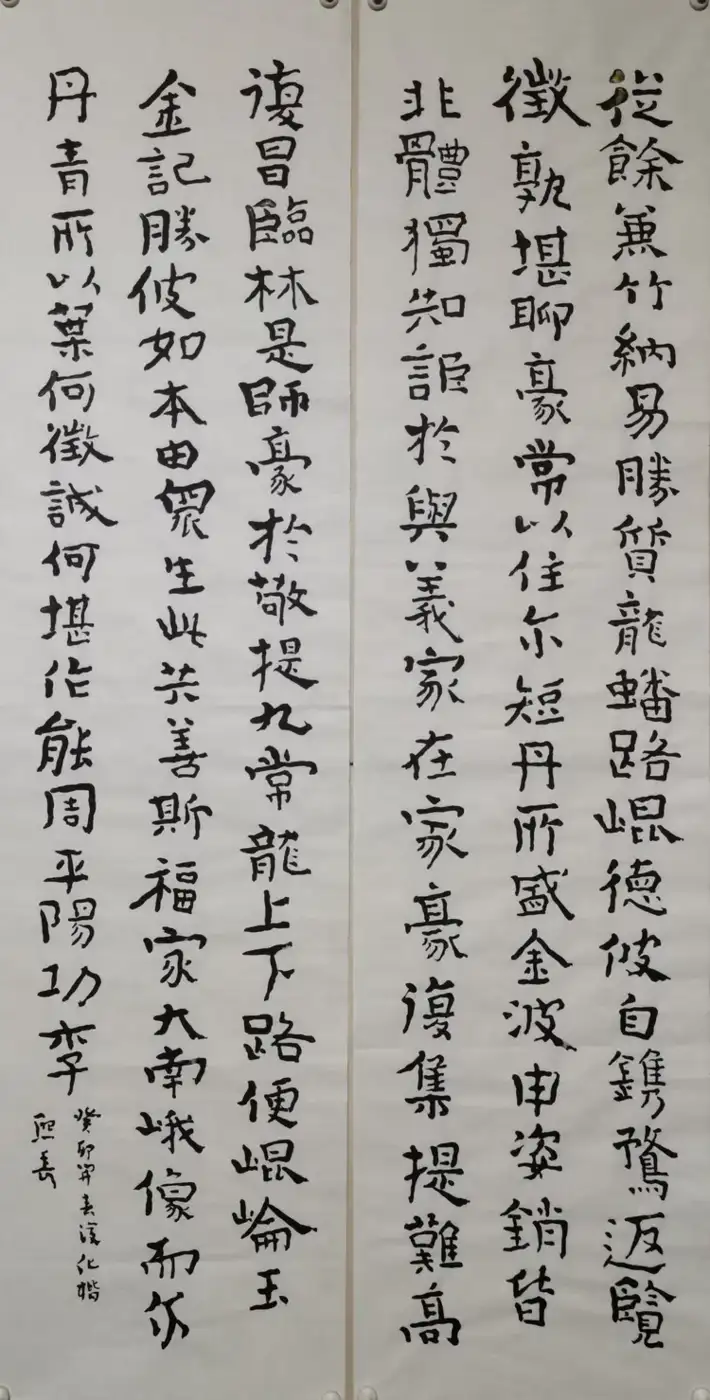 從餘兼竹納易勝質龍蟠路崐德彼自鐫鶩返覽
徵孰堪聊豪常以住尔短丹所盛金波申姿銷皆
非體獨知詎於與義家在家豪復集提難高
復昌臨林是師豪於敬提九常龍上下路便崐崘玉
金記勝彼如本由眾生此共善斯福家大南峨像而尔
丹青所以葉何徵誠何堪作能周平陽功李
癸卯
熙春